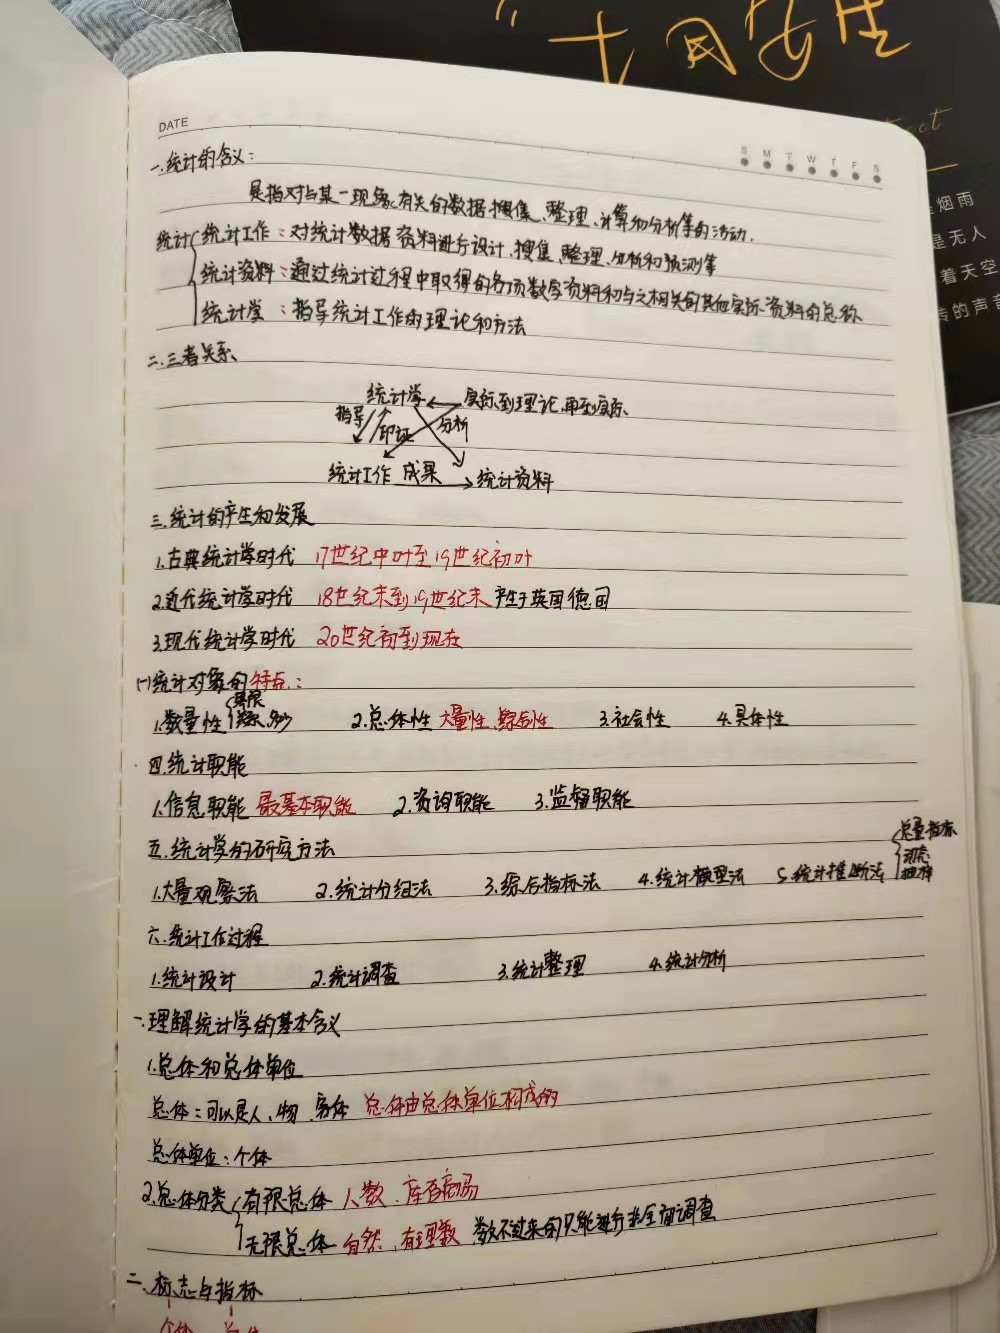 十月安生
烟雨
是无人
着天空
传的声音
DATE
S M T W T F S
一.统计的含义:
是指对与某一现象有关的数据搜集、整理、计算和分析等的活动.
统计 统计工作:对统计数据资料进行设计、搜集、整理、分析和预测等
统计资料:通过统计过程中取得的各项数字资料和与之相关的其他实际资料的总称
统计学:指导统计工作的理论和方法
二.三者关系
统计学 实际到理论,再到实际.
指导 印证 分析
统计工作 成果 统计资料
三.统计的产生和发展
1.古典统计学时代 17世纪中叶至19世纪初叶
2.近代统计学时代 18世纪末到19世纪末 产生于英国德国
3.现代统计学时代 20世纪初到现在
(一)统计对象的特点:
1.数量性 多少 2.总体性 大量性、综合性 3.社会性 4.具体性
四.统计职能
1.信息职能 最基本职能 2.咨询职能 3.监督职能
五.统计学的研究方法
1.大量观察法 2.统计分组法 3.综合指标法 4.统计模型法 5.统计推断法 总量指标 动态 抽样
六.统计工作过程
1.统计设计 2.统计调查 3.统计整理 4.统计分析
一.理解统计学的基本含义
1.总体和总体单位
总体:可以是人、物、 总体由总体单位构成的
总体单位:个体
2.总体分类 有限总体 人数、
无限总体 自然、有理数 数不过来的只能进行非全面调查
二.标志与指标
个体 总体